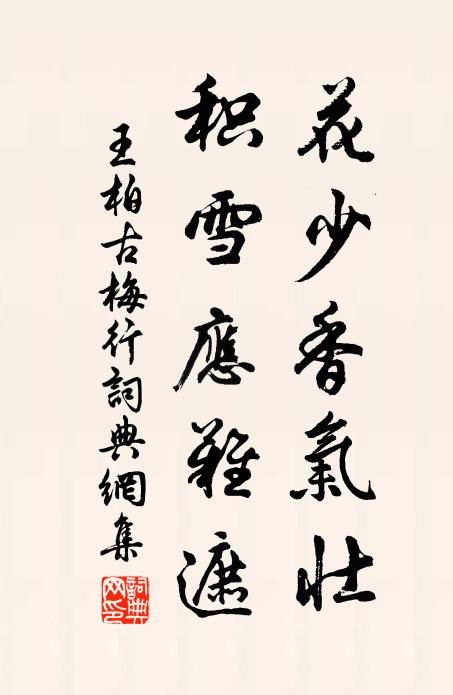 花少香氣壯
积雪應難遮
王柏古梅行詞典網集
詞典网印